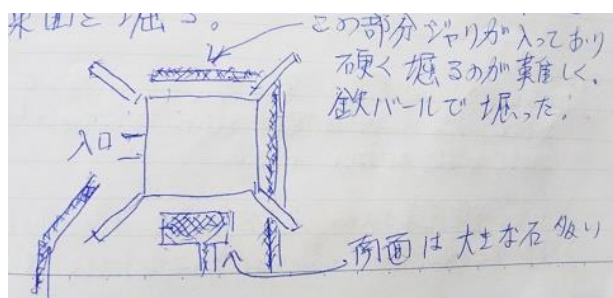 東面を掘る。
この部分ジャリが入っており
硬く掘るのが難しく、
鉄バールで堀った。
入口
南面は大きな石多い